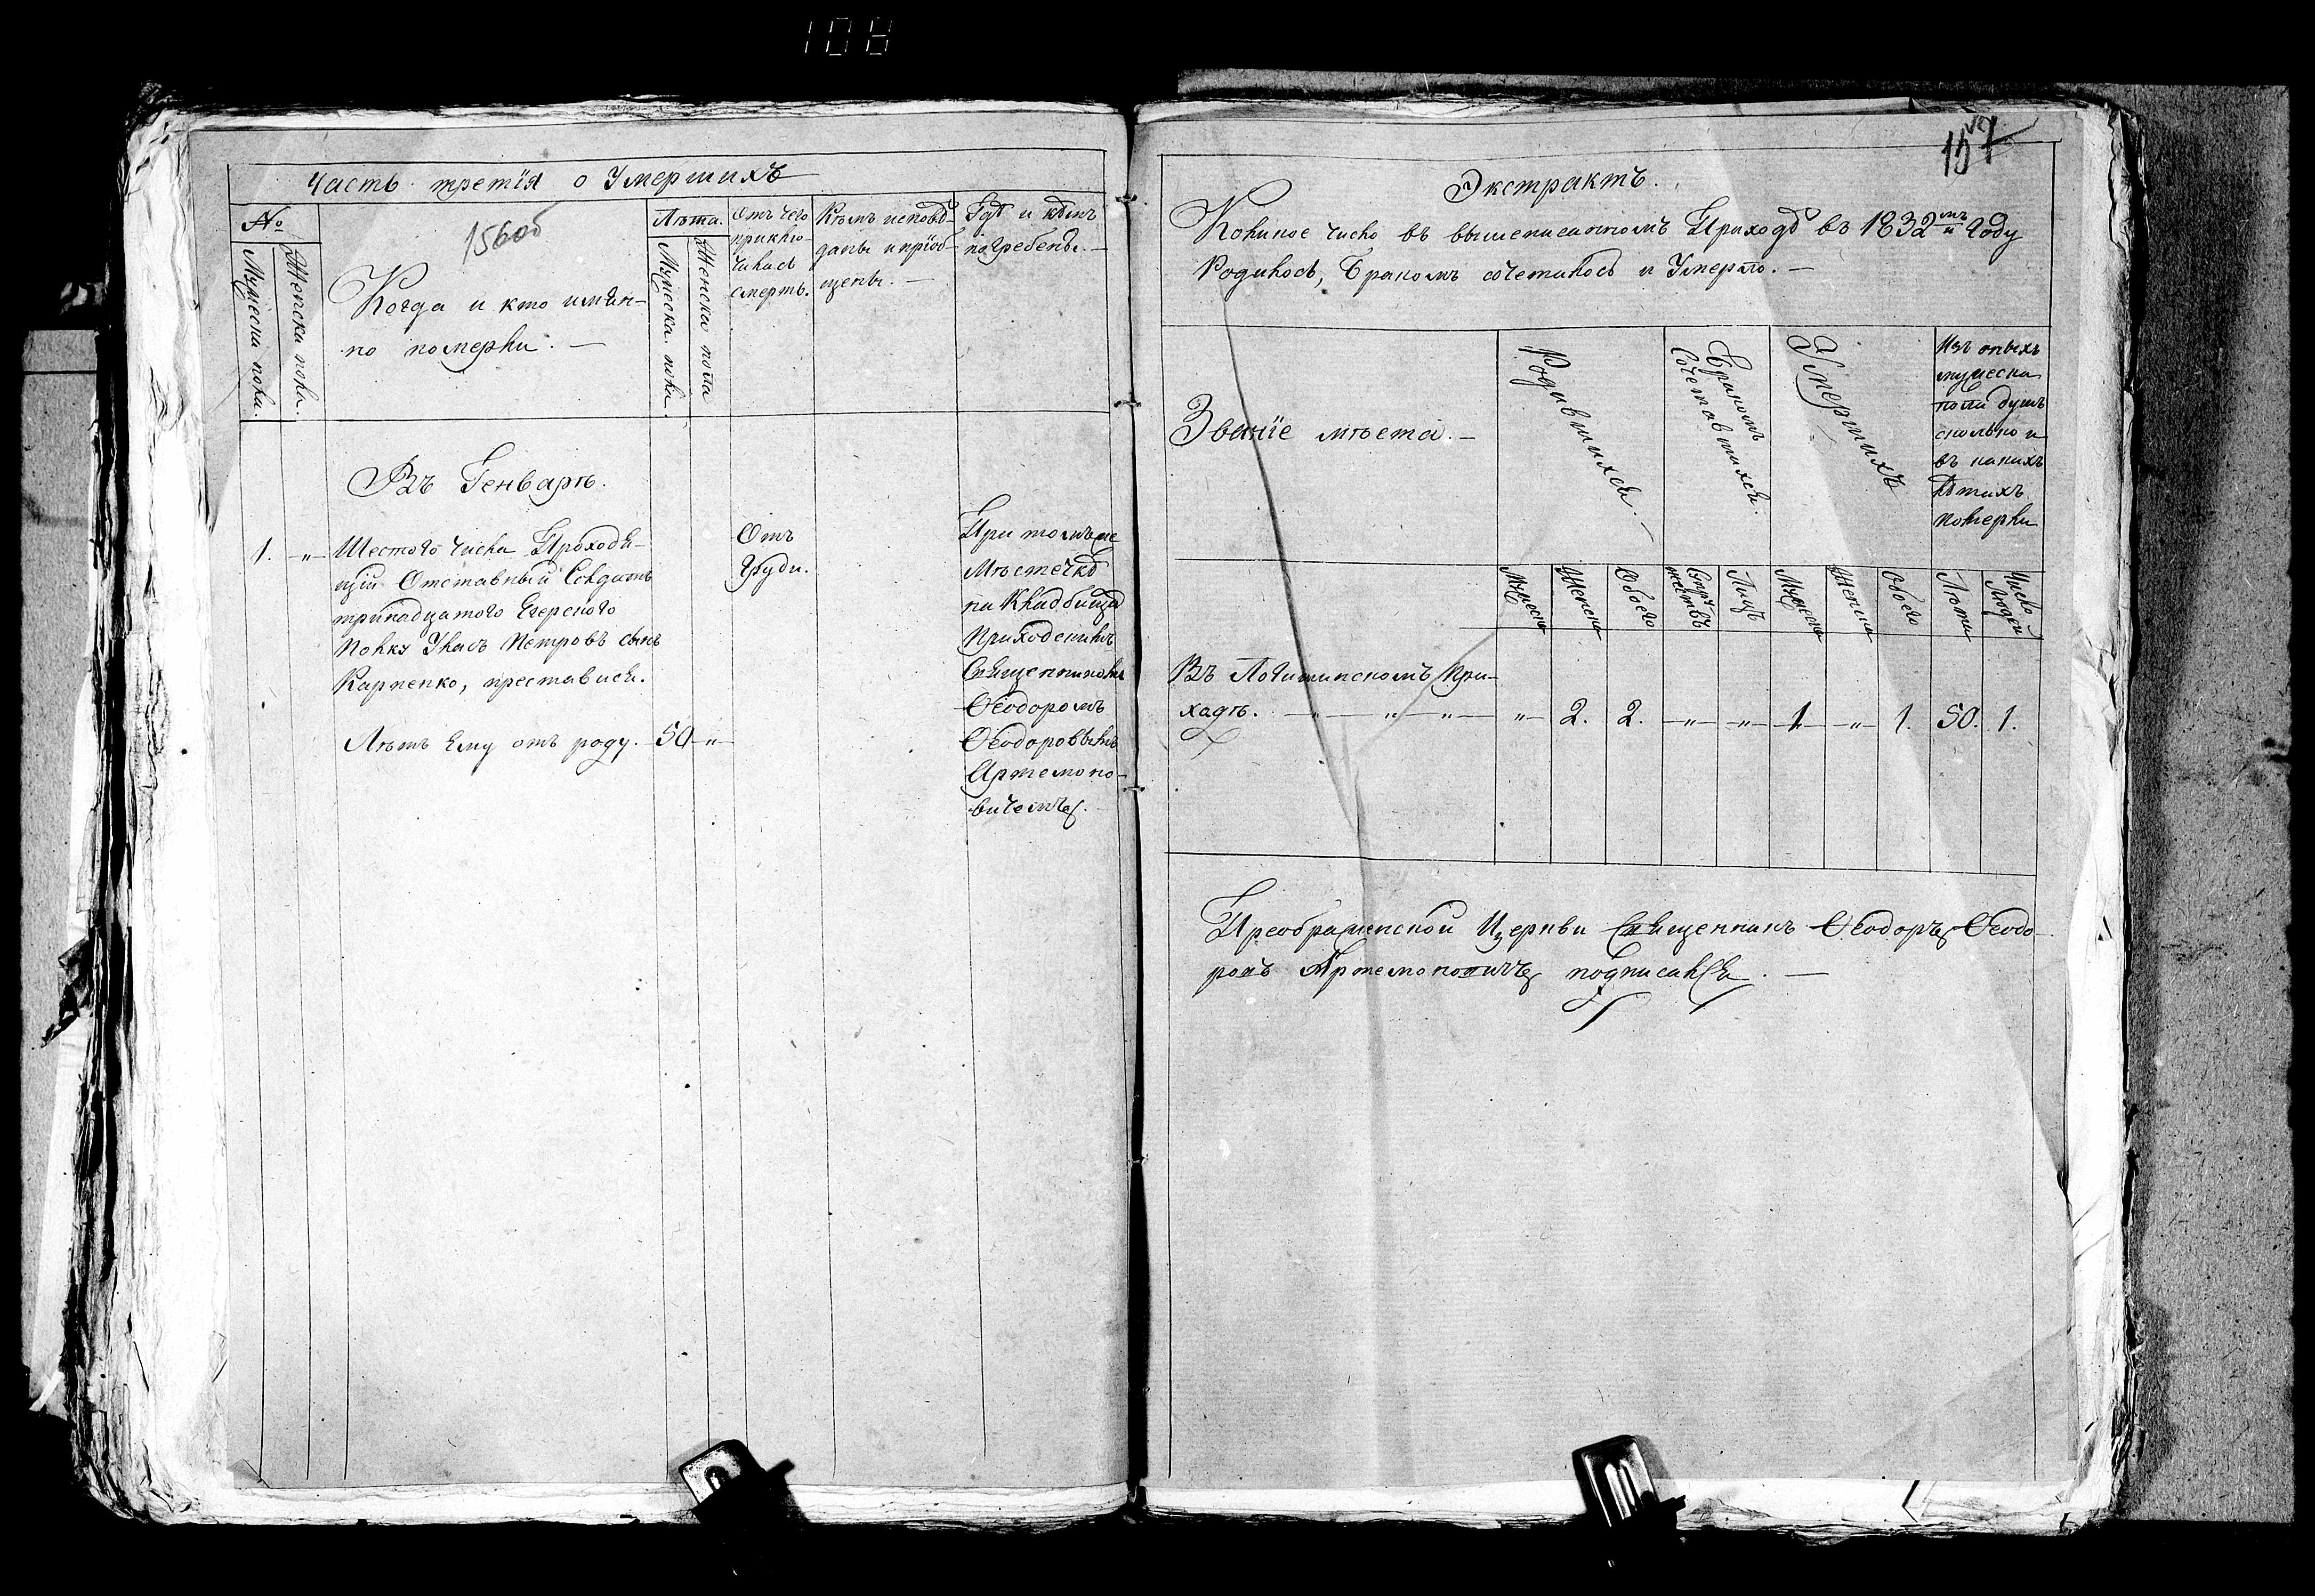 108
Часть третїя о Умершихъ
№
Мужеска пола.
Женска пола.
156об
Когда и кто имян-
но померли. —
Лѣта.
Мужеска пола
Женска пола
Отъ чего
приклю-
чилась
смерть.
Кѣмъ исповѣ-
даны и прїоб-
щены. —
Гдѣ и кѣмъ
погребены. —
Въ Генварѣ.
1. —„—
Шестого числа Проходя-
щїй Отставный Солдатъ
тринадцатого Егерского
полку Улась Петровъ сынъ
Карпенко, преставися.
Лѣтъ Ему отъ роду. — 50 —„—
Отъ
груди.
При томъ же
Мѣстечкѣ
на Кладбищѣ
Приходскимъ
Священникомъ
Ѳеодоромъ
Ѳеодоровымъ
Артемоно-
вичемъ. —
157
Экстрактъ.
Коликое число въ вышеписанномъ Приходѣ въ 1832мъ Году
Родилось, Бракомъ сочеталось и Умерло. —
Званїе мѣста. —
Родившихся. —
Бракомъ
Сочетавшихся.
Умершихъ
Изъ оныхъ
мужеска
пола душъ
сколько и
въ какихъ
лѣтахъ
померли
Мужеска
Женска
Обоего
Супру-
жествъ
Лицъ
Мужеска
Женска
Обоего
Лѣта
Число
Людей
Въ Логишинскомъ При-
ходѣ. —„—„—„— —„— 2. 2. —„— —„— 1 —„— 1. 50. 1.
Преображенской Церкви Священникъ Ѳеодоръ Ѳеодо-
ровъ Артемоновичъ подписался. —